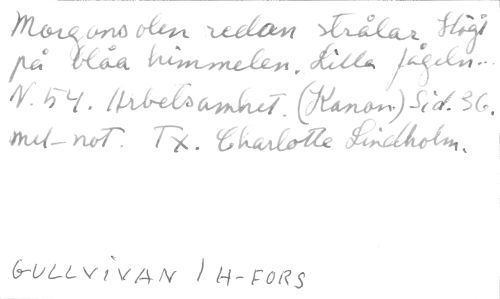 Morgonsolen redan strålar Högt
på blåa himmelen. Lilla fågeln...
N. 54. Arbetsamhet. (Kanon) Sid. 36.
mel-not. Tx. Charlotte Lindholm.
GULLVIVAN / H-FORS